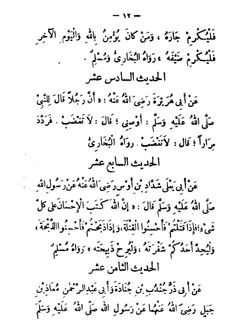 — ١٢ —
فَلْيُكْرِمْ جَارَهُ ، وَمَنْ كَانَ يُؤْمِنُ بِاللهِ وَالْيَوْمِ الْآخِرِ
فَلْيُكْرِمْ ضَيْفَهُ » رَوَاهُ الْبُخَارِيُّ وَمُسْلِمٌ .
الحديث السادس عشر
عَنْ أَبِي هُرَيْرَةَ رَضِيَ اللهُ عَنْهُ : « أَنَّ رَجُلًا قَالَ لِلنَّبِيِّ
صَلَّى اللهُ عَلَيْهِ وَسَلَّمَ : أَوْصِنِي ؛ قَالَ : لَا تَغْضَبْ . فَرَدَّدَ
مِرَارًا ؛ قَالَ : لَا تَغْضَبْ » . رَوَاهُ الْبُخَارِيُّ
الحديث السابع عشر
عَنْ أَبِي يَعْلَى شَدَّادِ بْنِ أَوْسٍ رَضِيَ اللهُ عَنْهُ عَنْ رَسُولِ اللهِ
صَلَّى اللهُ عَلَيْهِ وَسَلَّمَ قَالَ : « إِنَّ اللهَ كَتَبَ الْإِحْسَانَ عَلَى كُلِّ
شَيْءٍ ، فَإِذَا قَتَلْتُمْ فَأَحْسِنُوا الْقِتْلَةَ ، وَإِذَا ذَبَحْتُمْ فَأَحْسِنُوا الذِّبْحَةَ ،
وَلْيُحِدَّ أَحَدُكُمْ شَفْرَتَهُ ، وَلْيُرِحْ ذَبِيحَتَهُ » رَوَاهُ مُسْلِمٌ
الحديث الثامن عشر
عَنْ أَبِي ذَرٍّ جُنْدُبِ بْنِ جُنَادَةَ وَأَبِي عَبْدِ الرَّحْمَنِ مُعَاذِ بْنِ
جَبَلٍ رَضِيَ اللهُ عَنْهُمَا عَنْ رَسُولِ اللهِ صَلَّى اللهُ عَلَيْهِ وَسَلَّمَ